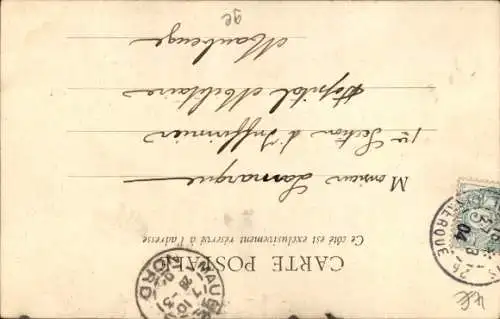 CARTE POSTALE
Ce côté est exclusivement réservé à l'adresse
Monsieur Lamarque
1re Section d'Infirmier
Hôpital Militaire
Maubeuge
NORD
04